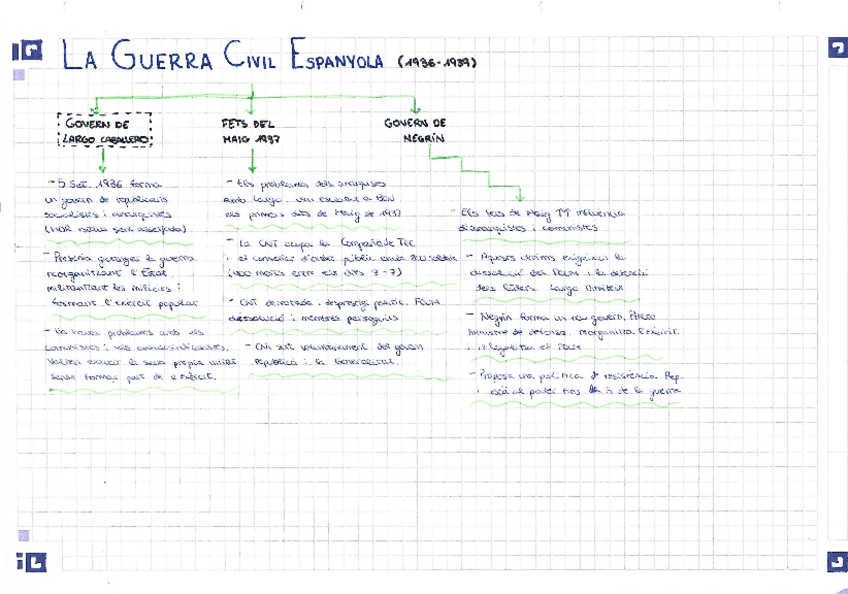 LA GUERRA CIVIL ESPANYOLA (1936-1939)
GOVERN DE
LARGO CABALLERO
- 5 Set. 1936 forma
un govern de republicans
socialistes i anarquistes
- Pretenia guanyar la guerra
reorganitzant l'Estat
militaritzant les milícies i
formant l'exèrcit popular
- Va haver problemes amb els
comunistes i els anarcosindicalistes.
Volien exercir la seva pròpia
sense formar part de l'exèrcit.
FETS DEL
MAIG 1937
- Els problemes dels anarquistes
amb Largo van esclatar a BCN
els primers dies de Maig de 1937
- La CNT ocupa la Companyia de Tel.
i el conseller d'ordre públic envia 200 soldats
(400 morts entre els dies 3-7)
- CNT derrotada, desprestigi polític. POUM
dissolució i membres perseguits
- CNT surt voluntàriament del govern
república i la Generalitat.
GOVERN DE
NEGRÍN
- Els fets de Maig influència
d'anarquistes i comunistes
- Aquests últims exigeixen la
dissolució del POUM i la
dels líders. Largo dimiteix
- Negrín forma un nou govern, Prieto
ministre de defensa, reorganitza l'exèrcit.
i il·legalitza el POUM
- Proposa una política de resistència.
al poder fins la fi de la guerra